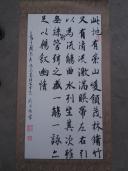 此地有崇山峻領茂林脩竹
又有清流激湍暎帶左右引
以為流觴曲水列坐其次雖
無絲竹管弦之盛一觴一詠
亦足以暢敘幽情